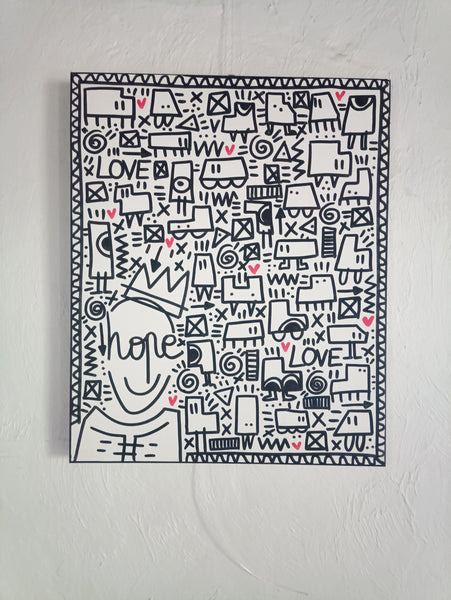 LOVE
hope
LOVE